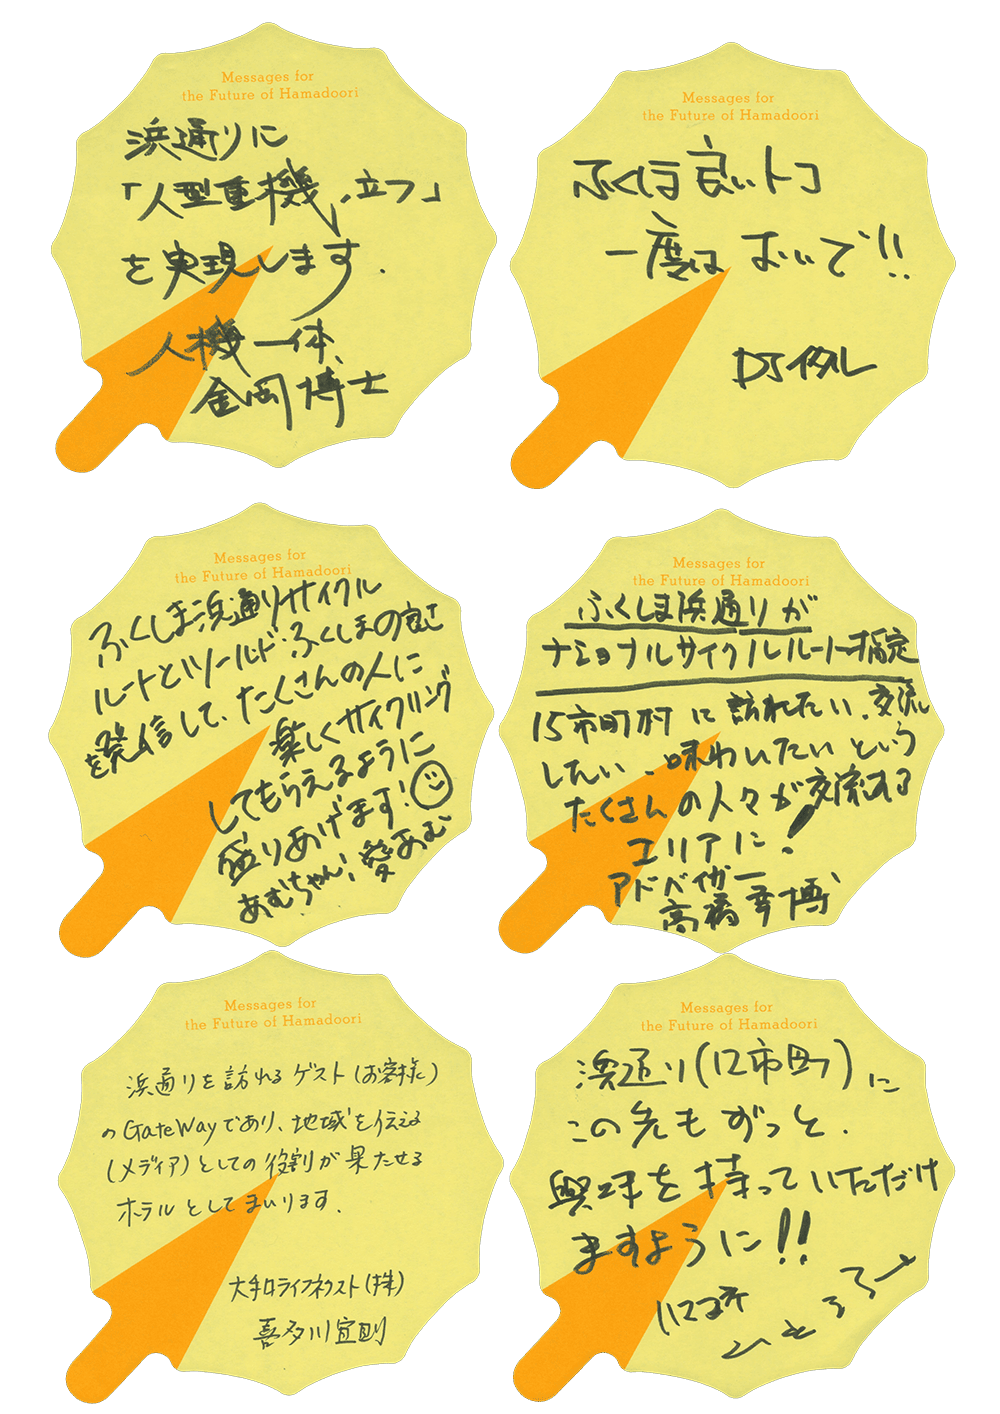 Messages for
the Future of Hamadoori
浜通りに
「人型重機、立つ」
を実現します.
人機一体、
金岡博士
Messages for
the Future of Hamadoori
ふくしま 良いトコ
一度は おいで!!
DJ
Messages for
the Future of Hamadoori
ふくしま浜通りサイクル
ルートとツールド・ふくしまの良さ
を発信して、たくさんの人に
楽しくサイクリング
してもらえるように
盛りあげます!
あむちゃん! 愛あむ
Messages for
the Future of Hamadoori
ふくしま浜通りが
ナショナルサイクルルート指定
15市町村 に 訪れたい、交流
したい、味わいたい という
たくさんの人々が交流する
エリアに!
アドバイザー
高橋幸博
Messages for
the Future of Hamadoori
浜通りを訪れるゲスト(お客様)
のGateWayであり、地域を伝える
(メディア)としての役割が果たせる
ホテルとしてまいります.
大手口ライフネクスト(株)
喜多川宜則
Messages for
the Future of Hamadoori
浜通り(12市町)に
この先もずっと.
興味を持っていただけ
ますように!!